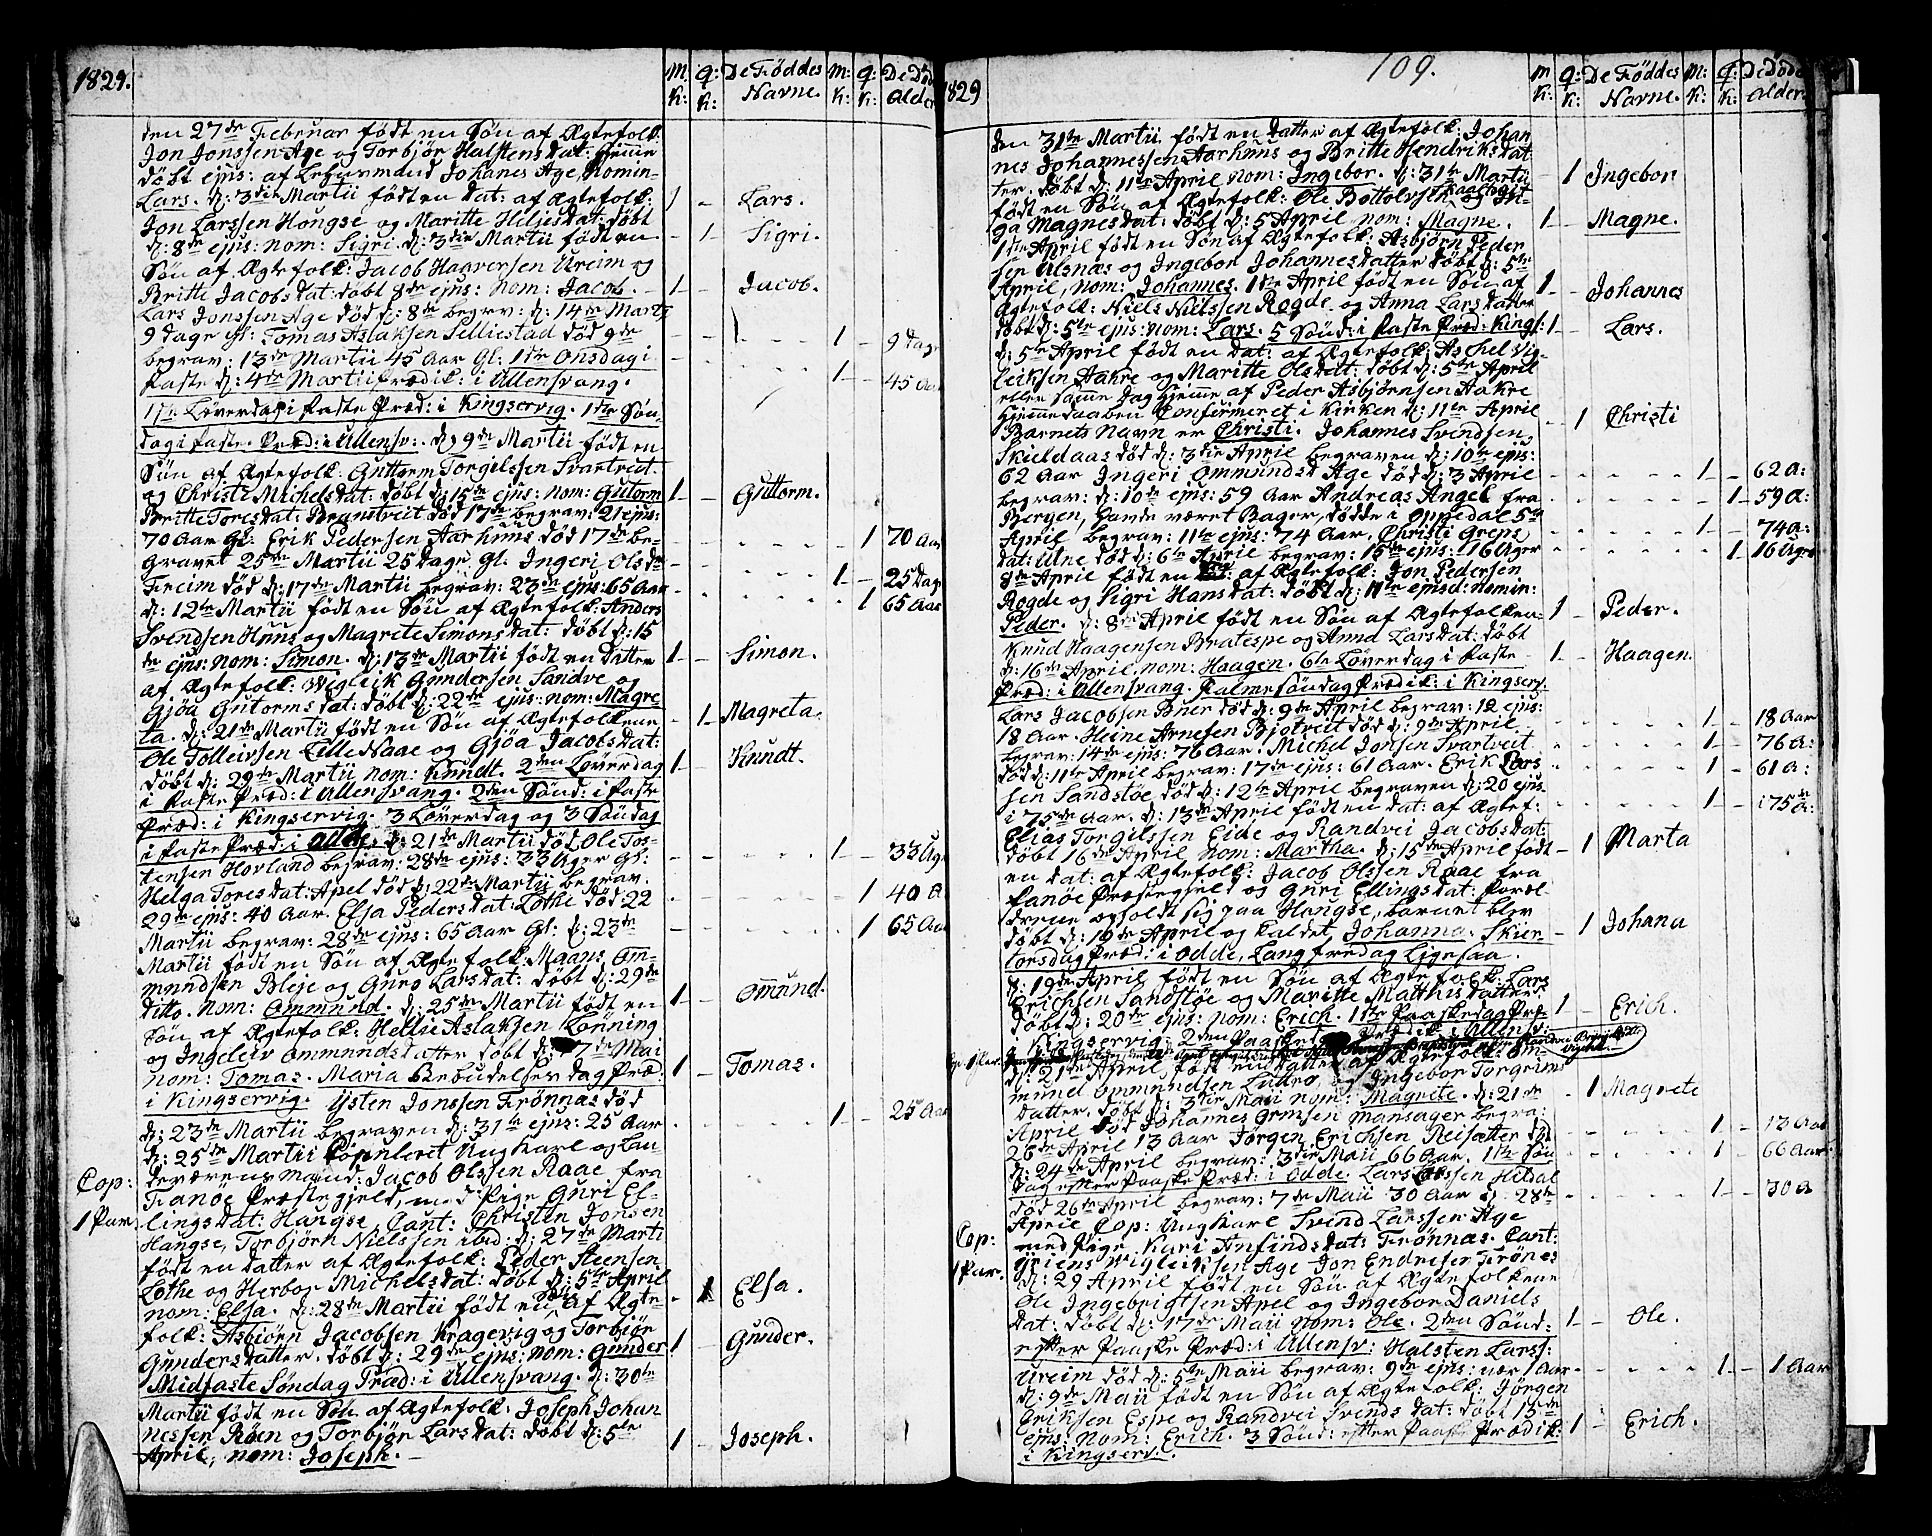 1829.
M: K:
Q: K:
De Föddes Navne.
M: K:
Q: K:
De Döde Alder
den 27de Februar födt en Sön af Ægtefolk:
Jon Jonssen Age og Torbjör Halstensdat: hjemme
döbt ejus: af Johanes Age, Nomin-
Lars. d: 3die Martii födt en dat: af Ægtefolk: 1 - Lars.
Jon Larssen Hougse og Maritte Heljesdat: döbt
d: 8de ejus: nom: Sigri. d: 3die Martii födt en - 1 - Sigri.
Sön af Ægtefolk: Jacob Haaversen Ureim og
Britte Jacobsdat: döbt 8de ejus: nom: Jacob. - 1 - Jacob.
Lars Jonssen Age död d: 8de begrav: d: 14de Marti
9 dage gl: Tomas Aslaksen Selliestad död 9de 1 - 9 dage
begrav: 13de Martii 45 Aar Gl: 1die Onsdag i
Faste d: 4de Martii Prædik: i Ullensvang. 1 - 45 Aar
1ste Löverdag i Faste Præd: i Kingservig. 1ste Sön-
dag i Faste Præd: i Ullensv: d: 9de Martii födt en
Sön af Ægtefolk: Guttorm Torgilssen Svartveit
og Christi Michelsdat: döbt d: 15de ejus: nom: Gutorm 1 - Guttorm.
Britte Toresdat: Branstveit död 17de begrav: 21 ejus:
70 Aar Gl: Erik Pedersen Aarhuus död 17de be- 1 70 Aar
gravet 25de Martii 25 Dage Gl. Ingeri Olsda
Freim död d: 17de Martii begrav: 23de ejus: 65 Aar 1 - 25 Dag
d: 12te Martii födt en Sön af Ægtefolk: Anders 1 65 Aar
Svendsen Huus og Magrete Simonsdat: döbt d: 15
de ejus: nom: Simon. d: 13de Martii födt en datter 1 - Simon.
af Ægtefolk: Wigleik Gundersen Sandve og
Gjöa Gutormsdat: döbt d: 22de ejus: nom: Magre
ta. d: 21de Martii födt en Sön af Ægtefolkene - 1 - Magreta.
Ole Tolleivsen Lille Naae og Gjöa Jacobsdat:
döbt d: 29de Martii nom: Knudt. 2den Löverdag 1 - Knudt.
i Faste Præd: i Ullensvang. 2den Sönd: i Faste
Præd: i Kingservig. 3 Löverdag og 3 Söndag
i Faste Præd: i Odde. d: 21de Martii död Ole Tos-
tensen Hovland begrav: 28de ejus: 33 Ager Gl: 1 - 33 Age
Helga Toresdat: Apel död d: 22de Martii begrav. 1 40 A
29de ejus: 40 Aar. Elsa Pedersdat: Lothe död 22
Martii begrav: 28de ejus: 65 Aar Gl: d: 23de 1 65 Aar
Martii födt en Sön af Ægtefolk: Maans Om-
mundsen Bleje og Guro Larsdat: döbt d: 29de
ditto. nom: Ommund. d: 25de Martii födt en 1 - Ommund.
Sön af Ægtefolk: Hellie Aslaksen Lönning
og Ingeleiv Ommundsdatter döbt d: 7de Mai
nom: Tomas. Maria Bebudelses dag Præd: 1 - Tomas.
i Kingservig. Ysten Jonssen Frönnas död
d: 23de Martii begraven d: 31te ejus: 25 Aar 1 - 25 Aar
d: 25de Martii Copuleret Ungkarl og Lan-
deværens mand: Jacob Olssen Raae fra
Cop: 1 Par
Fanoe Præstegjeld, med Pige Guri El-
lingsdat: Haugse, Caut: Christen Jonsen
Haugse, Torbjörn Nielssen ibid: d: 27de Marti
födt en datter af Ægtefolk: Peder Steensen
Lothe og Herbor Michelsdat: döbt d: 5te April
nom: Elsa. d: 28de Martii födt en Sön af Ægte- - 1 - Elsa.
folk: Asbjörn Jacobsen Kragevig og Torbjör
Gundersdatter. döbt d: 29de ejus: nom: Gunder. 1 - Gunder.
Midfaste Söndag Præd: i Ullensvang. d: 30te
Martii födt en Sön af Ægtefolk: Joseph Johan
nessen Röen og Torbjör Larsdat: döbt d: 5te
April, nom: Joseph. 1 - Joseph.
1829
109.
M: K:
Q: K:
De Föddes Navne.
M: K:
Q: K:
De Döde Alder
den 31te Martii födt en datter af Ægtefolk: Johan
nes Johannessen Aarhuus og Britte Hendriksdat
ter. döbt d: 11te April nom: Ingebor. d: 31te Martii - 1 Ingebor
födt en Sön af Ægtefolk: Ole Bottolvsen og In-
ga Magnesdat: döbt d: 5 April nom: Magne. 1 - Magne.
1te April födt en Sön af Ægtefolk: Asbjörn Peder
sen Alsnæs og Ingebor Johannesdatter döbt d: 5te
April, nom: Johannes. 1te April födt en Sön af 1 - Johannes
Ægtefolk: Niels Nilssen Rogde og Anna Larsdatter
döbt d: 5te ejus: nom: Lars. 5 Sönd: i Faste Præd: Kings: 1 - Lars.
d: 5te April födt en Dat: af Ægtefolk: Aschel Vig-
leiksen Aakre og Maritte Olsdat: döbt d: 5te April
eller samme Dag hjemme af Peder Asbjörnsen Aakre
hjemmedaaben Confirmeret i Kirken d: 11te April
Barnets Navn er Christi. Johannes Svendsen - 1 Christi
Skieldaas död d: 3die April begraven d: 10te ejus:
62 Aar Ingeri Ommundsd Age död d: 3 April 1 - 62 A:
begrav: d: 10de ejus: 59 Aar Andreas Angel fra 1 - 59 A:
Bergen, havde været Bager, dödde i Oppedal 5te
April begrav: 11te ejus: 74 Aar. Christi Greps 1 - 74 A:
dat: Utne död d: 6te April begrav: 15de ejus: 16 Ager 1 16 Ager
8de April födt en af Ægtefolk: Jon Pedersen
Rogde og Sigri Hansdat: döbt d: 11te ejusd: nomin:
Peder. d: 8de April födt en Sön af Ægtefolkene: 1 - Peder.
Knud Haagensen Bratespe og Anna Larsdat: döbt
d: 16de April nom: Haagen. 6te Löverdag i Faste 1 - Haagen.
Præd: i Ullensvang. Palmesöndag Prædik: i Kingserv.
Lars Jacobsen Buer död d: 9de April begrav: 12 ejus:
18 Aar. Heine Arnesen Bjotveit död d: 9de April. 1 - 18 Aar
begrav: 14de ejus: 76 Aar. Michel Jonsen Svartveit 1 - 76 A:
död d: 11te April begrav: 17de ejus: 61 Aar. Erik Lars 1 - 61 A:
sen Sandstöe död d: 12te April begraven d: 20 ejus
i 75de Aar. d: 13de April födt en dat: af Ægtef: 1 - i 75de A:
Elias Torgilssen Eide og Randvei Jacobsdat:
döbt 16de April nom: Martha. d: 15de April födt - 1 Marta
en dat: af Ægtefolk: Jacob Olssen Raae fra
Fanöe Præstegjeld og Guri Ellingsdat: Foræl
drene opholdt sig paa Haugse, barnet blev
döbt d: 16de April og kaldet Johanna. Skier - 1 Johana
torsdag Præd: i Odde, Langfredag Ligesaa.
d: 19de April födt en Sön af Ægtefolk: Lars
Erichsen Sandstöe og Maritte Matthisdatter
döbt d: 20de ejus: nom: Erich. 1ste Paaskedag Præ: 1 - Erich.
i Kingservig. 2den Paaskedag Prædik: i Ullensv:
d: 21de April, födt en datter af Ægtefolk: Om-
mund Ommundsen Lutro, og Ingebor Torgrims
datter. döbt d: 3die Maii nom: Magrete. d: 21de 1 Magrete
April död Johannes Ormsen Mansager begra:
26de April 13 Aar Jörgen Erichsen Reisæter död 1 - 13 Aar
d: 24de April begrav: 3die Maii 66 Aar. 1ste Sön 1 - 66 Aar
dag efter Paaske Præd: i Odde. Lars Olssen Hildal
död 26de April begrav: 7de Maii 30 Aar d: 28te 1 - 30 A
April Cop: Ungkarl Svend Larssen Age
Cop: 1 Par.
med Pige Kari Anfindsdat: Frönnas. Caut:
Griens Vigleiksen Age Jon Endresen Frönes
d: 29 April födt en Sön af Ægtefolkene
Ole Ingebrigtsen Apel og Ingebor Daniels
dat: döbt d: 17de Maii nom: Ole. 2den Sönd: 1 - Ole.
efter Paaske Præd: i Ullensv: Halsten Larss:
Ureim död d: 5te Maii begrav: 9de ejus: nær 1 Aar 1 - 1 Aar
d: 9de Maii födt en Sön af Ægtefolk: Jörgen
Eriksen Espe og Randvei Svendsdat: döbt 15de
ejus: nom: Erich. 3 Sönd: efter Paaske Prædik: 1 - Erich.
i Kingserv: